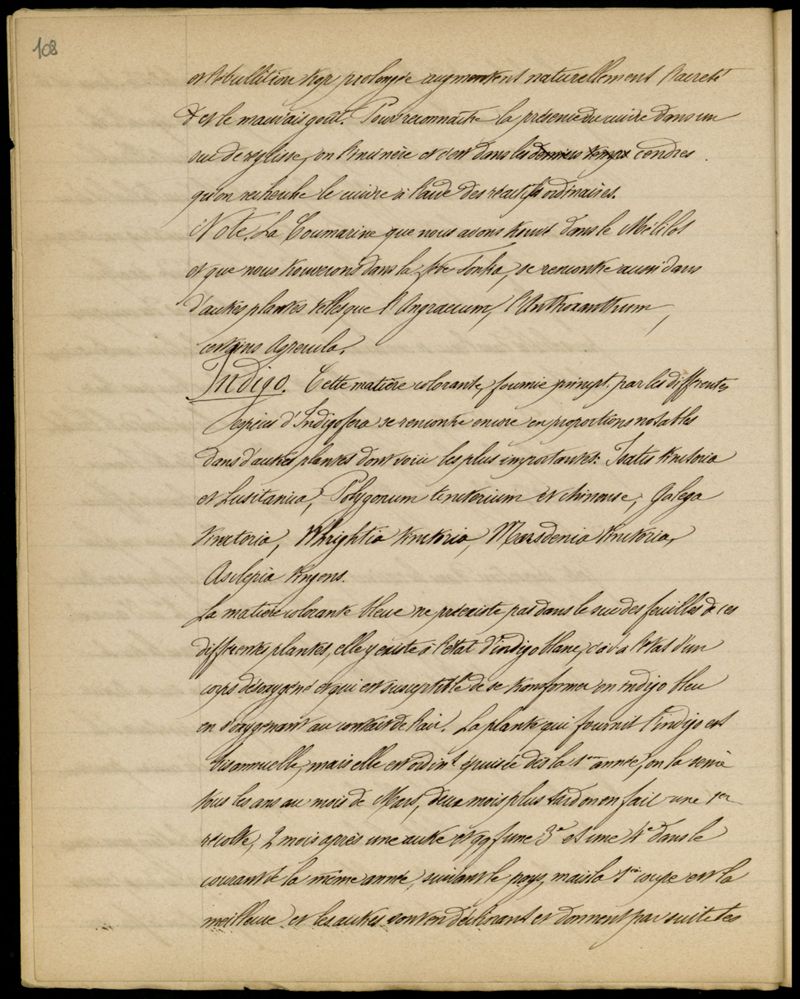 108
et l'ébullition trop prolongée augmentent naturellement l'acreté
& et le mauvais goût. Pour reconnaitre la présence du cuivre dans un
suc de réglisse, on l'incinère et c'est dans les derniers temps cendres
qu'on recherche le cuivre à l'aide des réactifs ordinaires.
Note. La Coumarine que nous avons trouvé dans le Mélilot
et que nous trouverons dans la fève Tonka, se rencontre aussi dans
d'autres plantes telles que l'Angraecum, l'Anthoxanthum,
certains
Indigo. Cette matière colorante, fournie princpt. par les différentes
espèces d'Indigofera se rencontre encore en proportions notables
dans d'autres plantes dont voici les plus importantes: Isatis tinctoria
et Lusitanica, Polygonum tinctorium et chinense, Galega
tinctoria, Whrightia tinctoria, Marsdenia tinctoria,
Asclepia tingens.
La matière colorante bleue ne préexiste pas dans le suc des feuilles de ces
différentes plantes, elle y existe à l'état d'indigo blanc, c'à.d. à l'état d'un
corps désoxygéné et qui est susceptible de se transformer en indigo bleu
en s'oxygénant au contact de l'air. La plante qui fournit l'indigo est
bisannuelle, mais elle est ordint. épuisée dès la 1ère année, on la sème
tous les ans au mois de Mars, deux mois plus tard on en fait une 1er
récolte, 2 mois après une autre et qqf une 3e et une 4e dans le
courant de la même année, suivant le pays, mais la 1ère coupe est la
meilleure et les autres vont en décroissant et donnent par suite des